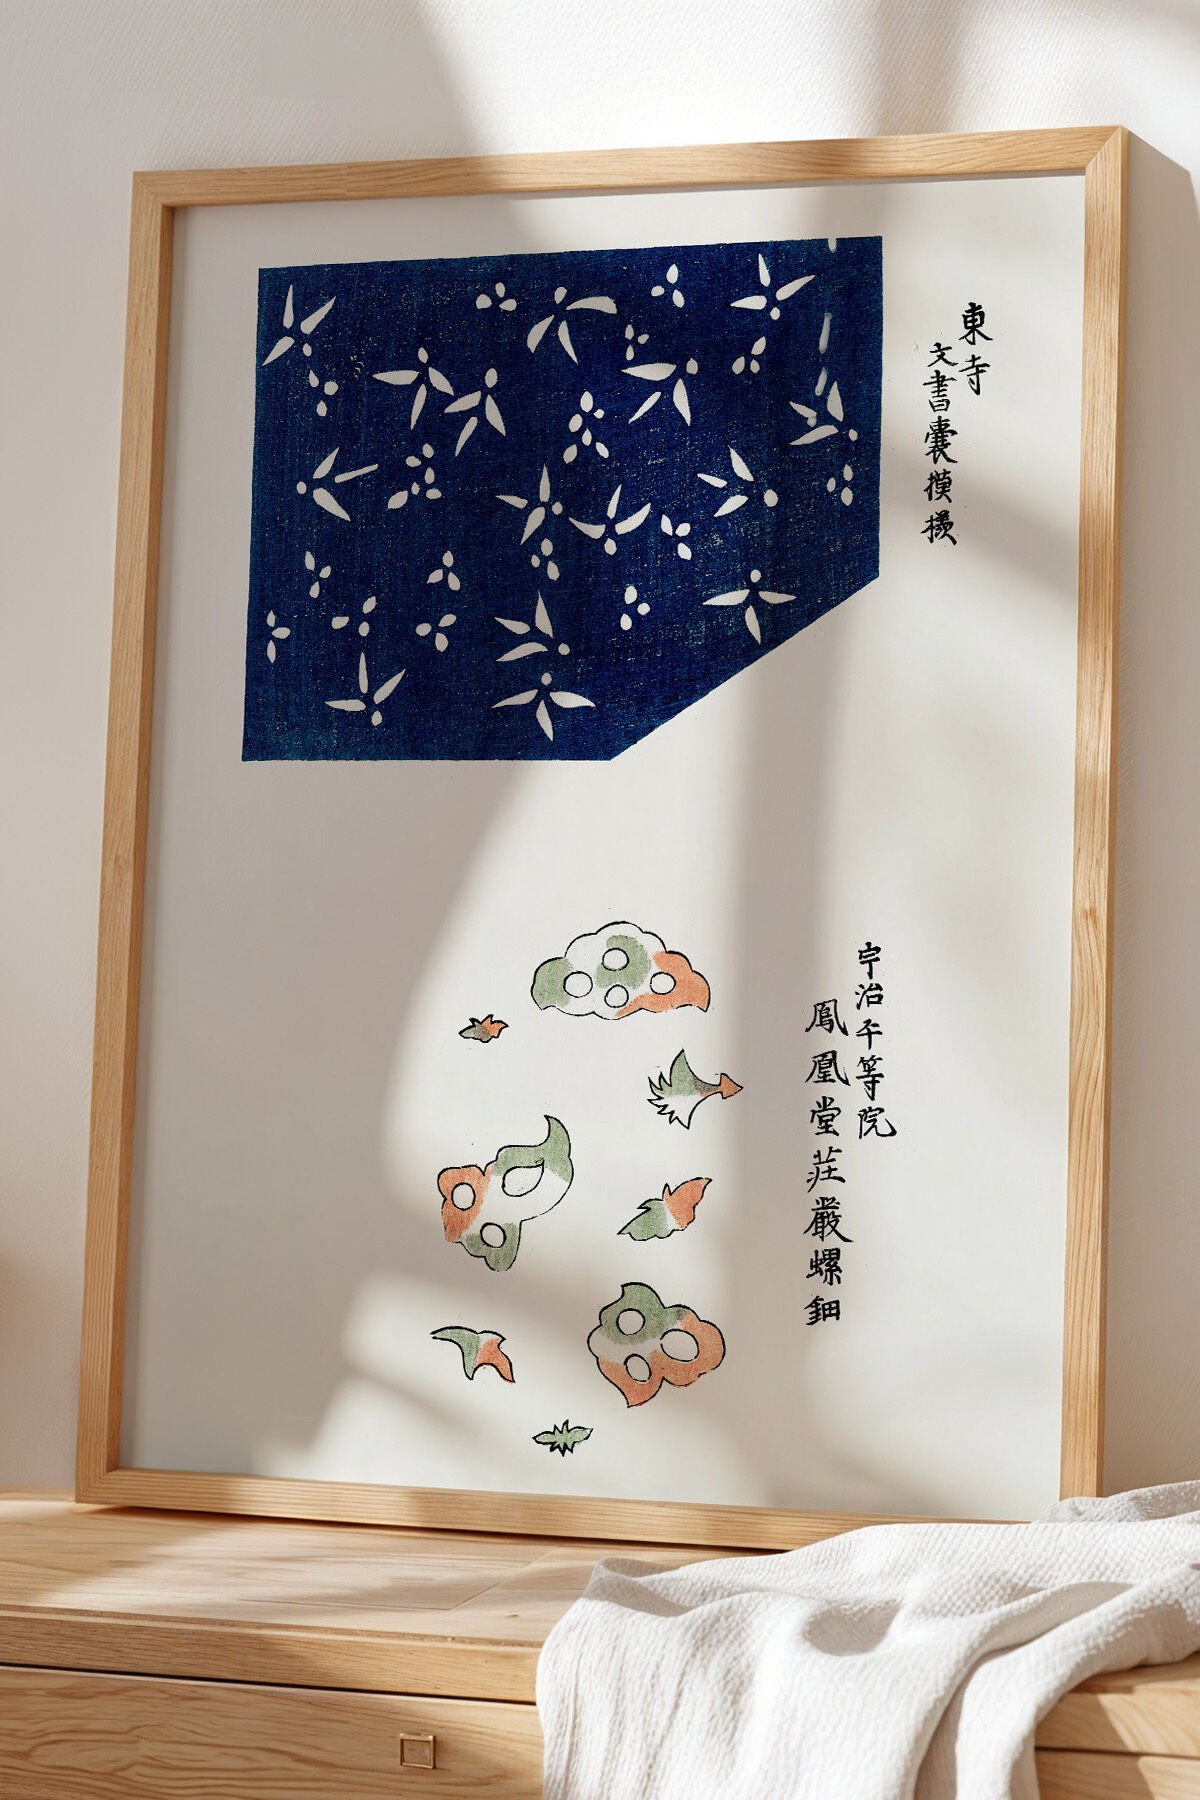 東寺
文書嚢模様
宇治平等院
鳳凰堂荘厳螺鈿